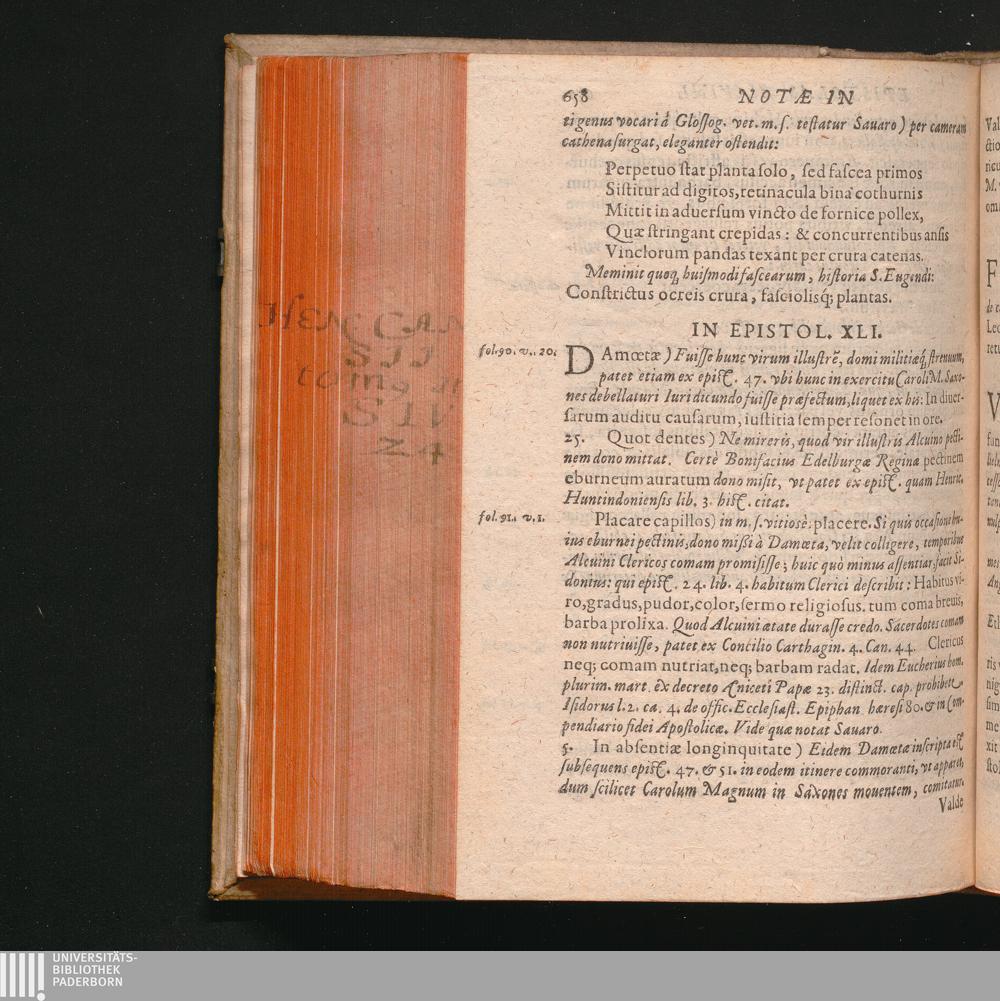 658 NOTÆ IN
ti genus vocari á Gloſſog. vet. m. ſ. teſtatur Sauaro) per cameram
cathena ſurgat, eleganter oſtendit:
Perpetuo ſtat planta ſolo, ſed faſcea primos
Siſtitur ad digitos, retinacula bina cothurnis
Mittit in aduerſum vincto de fornice pollex,
Quæ ſtringant crepidas: & concurrentibus anſis
Vinclorum pandas texánt per crura catenas.
Meminit quoq; huiſmodi faſcearum, hiſtoria S. Eugendi:
Conſtrictus ocreis crura, faſciolisq́; plantas.
IN EPISTOL. XLI.
fol. 90. v.. 20.
DAmœtæ) Fuiſſe hunc virum illuſtrē, domi militiæq́, ſtrenuum,
patet etiam ex epiſt. 47. vbi hunc in exercitu Caroli M. Saxo-
nes debellaturi Iuri dicundo fuiſſe præfectum, liquet ex his: In diuer-
ſarum auditu cauſarum, iuſtitia ſemper reſonet in ore.
25. Quot dentes) Ne mireris, quod vir illuſtris Alcuino pecti-
nem dono mittat. Certè Bonifacius Edelburgæ Reginæ pectinem
eburneum auratum dono miſit, vt patet ex epiſt. quam Henric.
Huntindonienſis lib. 3. hiſt. citat.
fol. 91.. v. 1.
Placare capillos) in m. ſ. vitiosè: placere. Si quis occaſione hu-
ius eburnei pectinis, dono miſſi à Damœta, velit colligere, temporibus
Alcuini Clericos comam promiſiſſe; huic quò minus aſſentiar, facit Si-
donius: qui epiſt. 24. lib. 4. habitum Clerici deſcribit: Habitus vi-
ro, gradus, pudor, color, ſermo religioſus. tum coma breuis,
barba prolixa. Quod Alcuini ætate duraſſe credo. Sacerdotes comam
non nutriuiſſe, patet ex Concilio Carthagin. 4. Can. 44. Clericus
neq; comam nutriat, neq; barbam radat. Idem Eucherius hom.
plurim. mart. ex decreto Aniceti Papæ 23. diſtinct. cap. prohibete.
Iſidorus l. 2. ca. 4. de offic. Eccleſiaſt. Epiphan. hæreſi 80. & in Com-
pendiario fidei Apoſtolicæ. Vide quæ notat Sauaro.
5. In abſentiæ longinquitate) Eidem Damœtæ inſcripta eſt
ſubſequens epiſt. 47. & 51. in eodem itinere commoranti, vt apparet,
dum ſcilicet Carolum Magnum in Saxones mouentem, comitatur.
Valde
HENC CAN
SII
tom9
SIV
24
UNIVERSITÄTS-
BIBLIOTHEK
PADERBORN